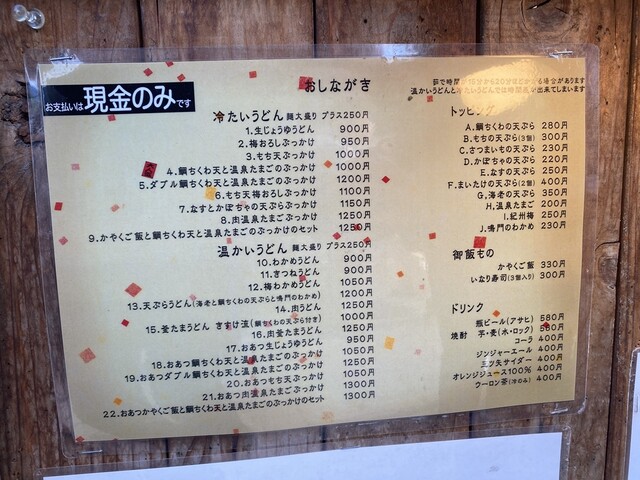 おしながき
お支払いは現金のみです
茹で時間が15分から20分ほどかかる場合があります
温かいうどんと冷たいうどんでは時間差が出来てしまいます
冷たいうどん 麺大盛り プラス250円
1.生じょうゆうどん 900円
2.梅おろしぶっかけ 950円
3.もち天ぶっかけ 1000円
4.鯛ちくわ天と温泉たまごのぶっかけ 1000円
5.ダブル鯛ちくわ天と温泉たまごのぶっかけ 1200円
6.もち天梅おろしぶっかけ 1100円
7.なすとかぼちゃの天ぷらぶっかけ 1150円
8.肉温泉たまごぶっかけ 1250円
9.かやくご飯と鯛ちくわ天と温泉たまごのぶっかけのセット 1250円
温かいうどん 麺大盛り プラス250円
10.わかめうどん 900円
11.きつねうどん 900円
12.梅わかめうどん 1050円
13.天ぷらうどん(海老と鯛ちくわの天ぷらと鳴門のわかめ) 1200円
14.肉うどん 1250円
15.釜たまうどん きすけ流(鯛ちくわの天ぷら付き) 1000円
16.肉釜たまうどん 1250円
17.おあつ生じょうゆうどん 950円
18.おあつ鯛ちくわ天と温泉たまごのぶっかけ 1050円
19.おあつダブル鯛ちくわ天と温泉たまごのぶっかけ 1250円
20.おあつもち天ぶっかけ 1050円
21.おあつ肉温泉たまごぶっかけ 1300円
22.おあつかやくご飯と鯛ちくわ天と温泉たまごのぶっかけのセット 1300円
トッピング
A.鯛ちくわの天ぷら 280円
B.もちの天ぷら(3個) 300円
C.さつまいもの天ぷら 230円
D.かぼちゃの天ぷら 220円
E.なすの天ぷら 250円
F.まいたけの天ぷら(2個) 400円
G.海老の天ぷら 350円
H.温泉たまご 200円
I.紀州梅 250円
J.鳴門のわかめ 230円
御飯もの
かやくご飯 330円
いなり寿司(3個入り) 300円
ドリンク
瓶ビール(アサヒ) 580円
焼酎 芋・麦(水・ロック)
コーラ 400円
ジンジャーエール 400円
三ツ矢サイダー 400円
オレンジジュース100% 400円
ウーロン茶(冷のみ) 400円